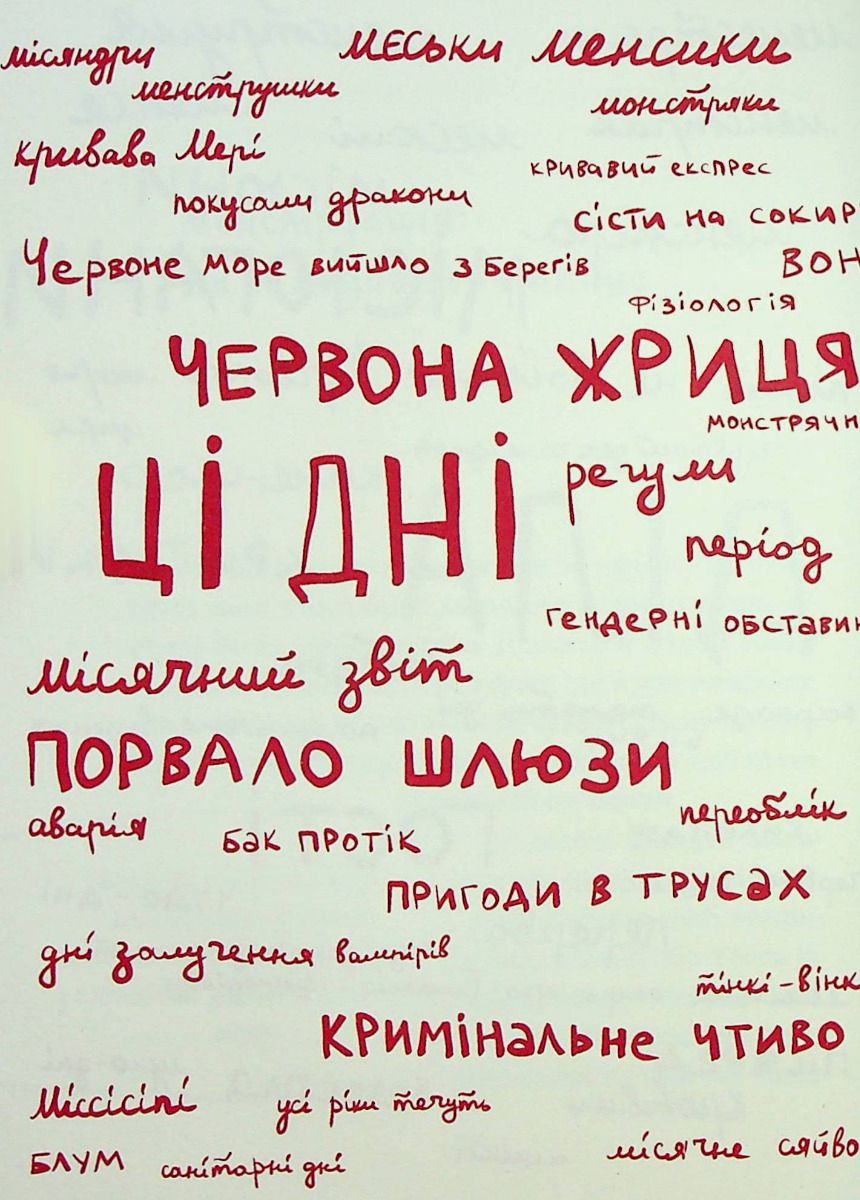 місяндри
мєськи менсики
менструшки
монстряки
кривава Мері
кривавий експрес
покусали дракони
сісти на сокир
Червоне море вийшло з берегів
вон
фізіологія
ЧЕРВОНА ЖРИЦЯ
монстрячн
ЦІ ДНІ
регули
період
гендерні обставин
місячний звіт
ПОРВАЛО ШЛЮЗИ
переоблік
аварія
бак протік
ПРИГОДИ В ТРУСАХ
дні залучення вампірів
тінкі-вінк
Кримінальне чтиво
Міссісіпі
усі ріки течуть
місячне сяйво
БЛУМ
санітарні дні